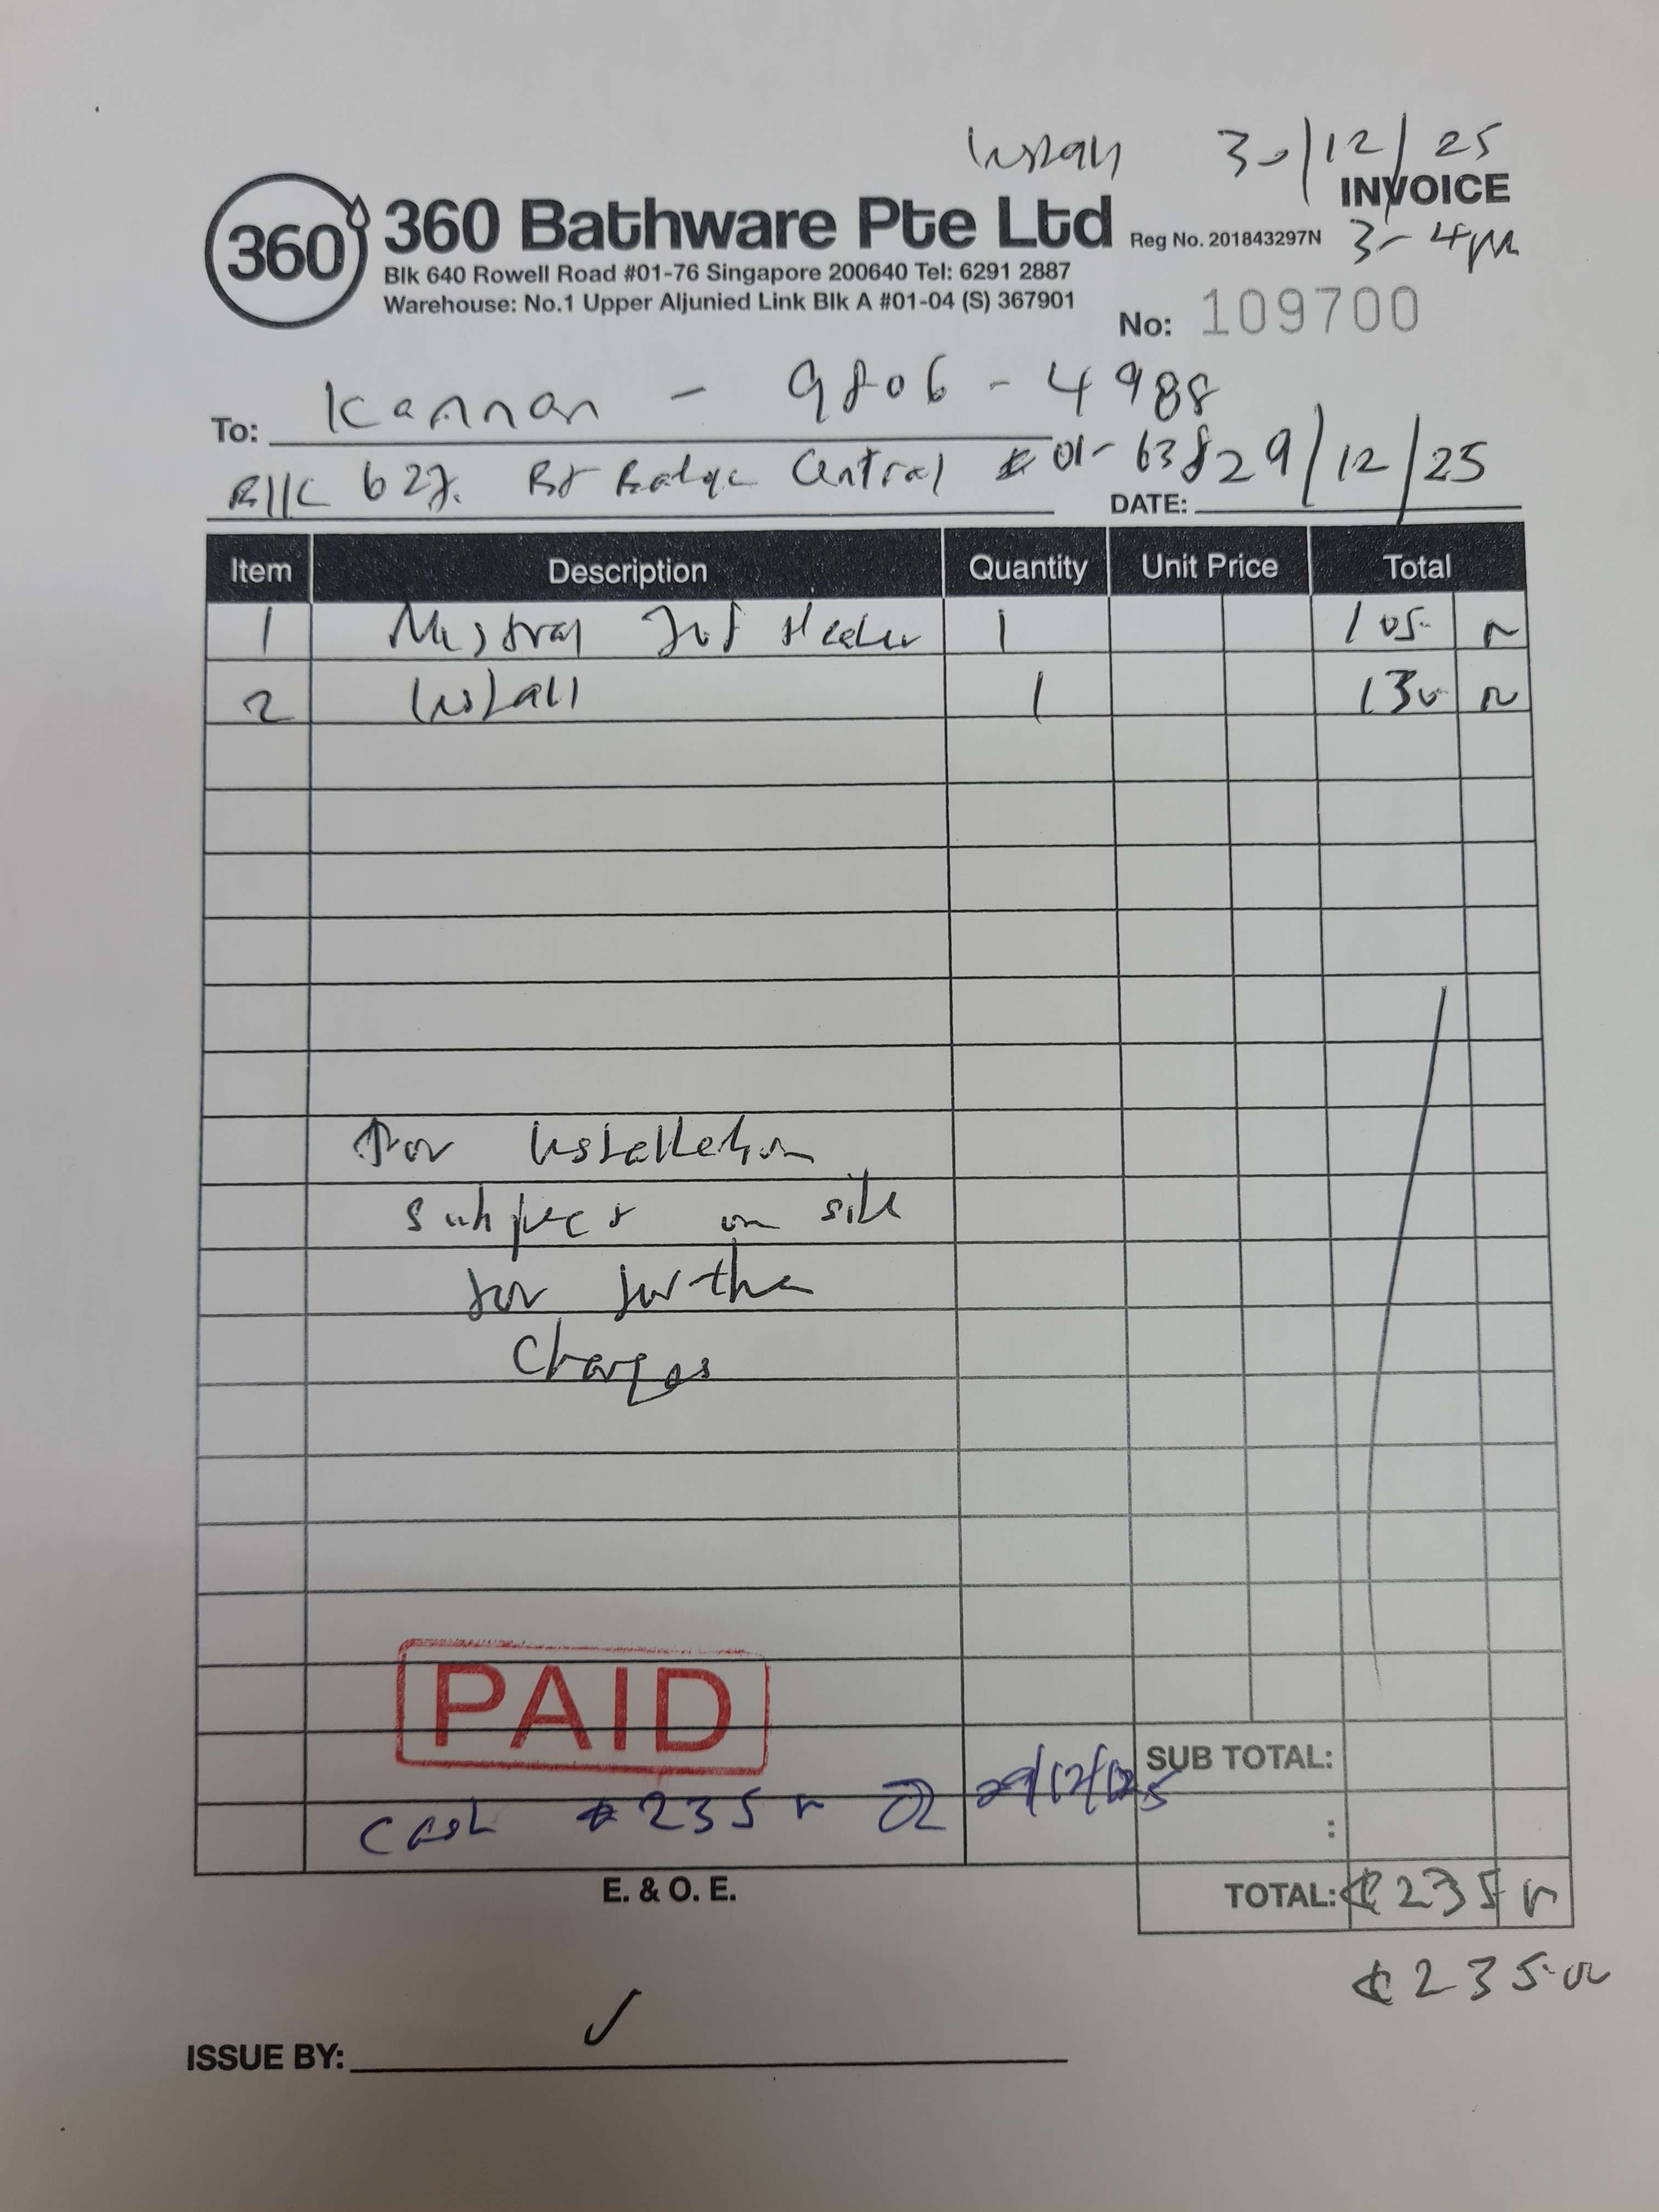 Install 30/12/25
INVOICE
3-4pm
360
360 Bathware Pte Ltd
Reg No. 201843297N
Blk 640 Rowell Road #01-76 Singapore 200640 Tel: 6291 2887
Warehouse: No.1 Upper Aljunied Link Blk A #01-04 (S) 367901
No: 109700
To: Kannan - 9806-4988
Blk 627. Central #01-638
DATE: 29/12/25
Item Description Quantity Unit Price Total
1 Mistral Heater 1 105
2 Install 1 130
For Installation
subject on site
for further
Charges
PAID
SUB TOTAL:
Cash $235 29/12/25
:
E. & O. E.
TOTAL: $235
$235.00
ISSUE BY: